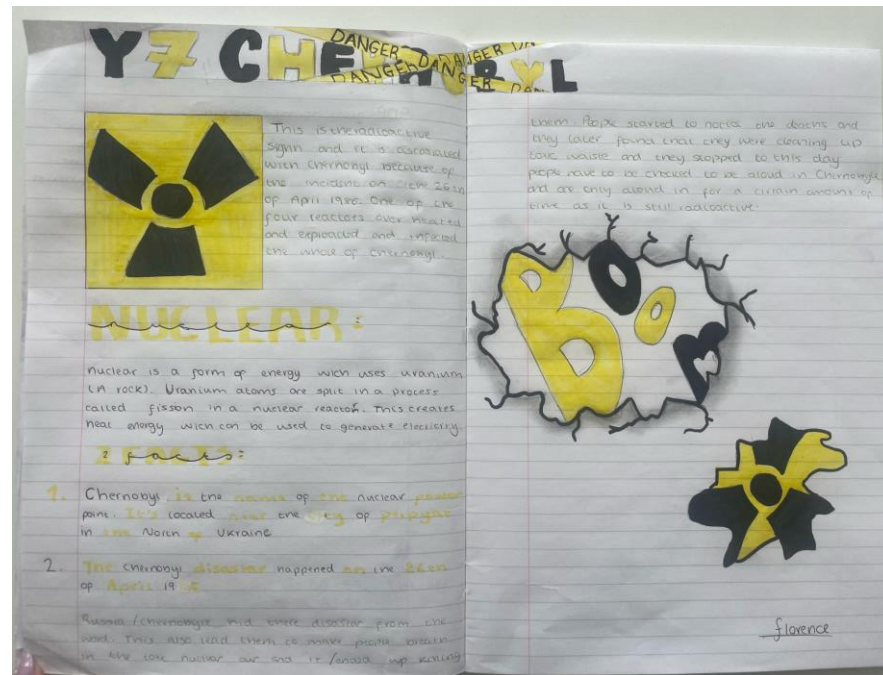 Y7 CHERNOBYL
DANGER DANGER
DANGER DANGER
This is the radioactive
signn and it is ascosiated
with chernobyl because of
the incident on the 26th
of April 1986. One of the
four reactors over heated
and exploaded and infected
the whole of chernobyl.
NUCLEAR:
nuclear
nuclear is a form of energy wich uses uranium
(A rock). Uranium atoms are split in a process
called fisson in a nuclear reactor. This creates
heat energy wich can be used to generate electricity.
2 FACTS:
1. Chernobyl is the name of the nuclear power
point. It's located near the city of pripyat
in the North of Ukraine
2. The chernobyl disaster happened on the 26th
of April 19
Russia / chernobyle hid there disaster from the
word. This also lead them to make people breath
in the toxic nuclear air and it /ended up killing
them. People started to notice the deaths and
they later found that they were cleaning up
toxic waiste and they stopped to this day
people have to be checked to be aloud in Chernobyle
and are only aloud in for a certain amount of
time as it is still radioactive.
BOOM
florence